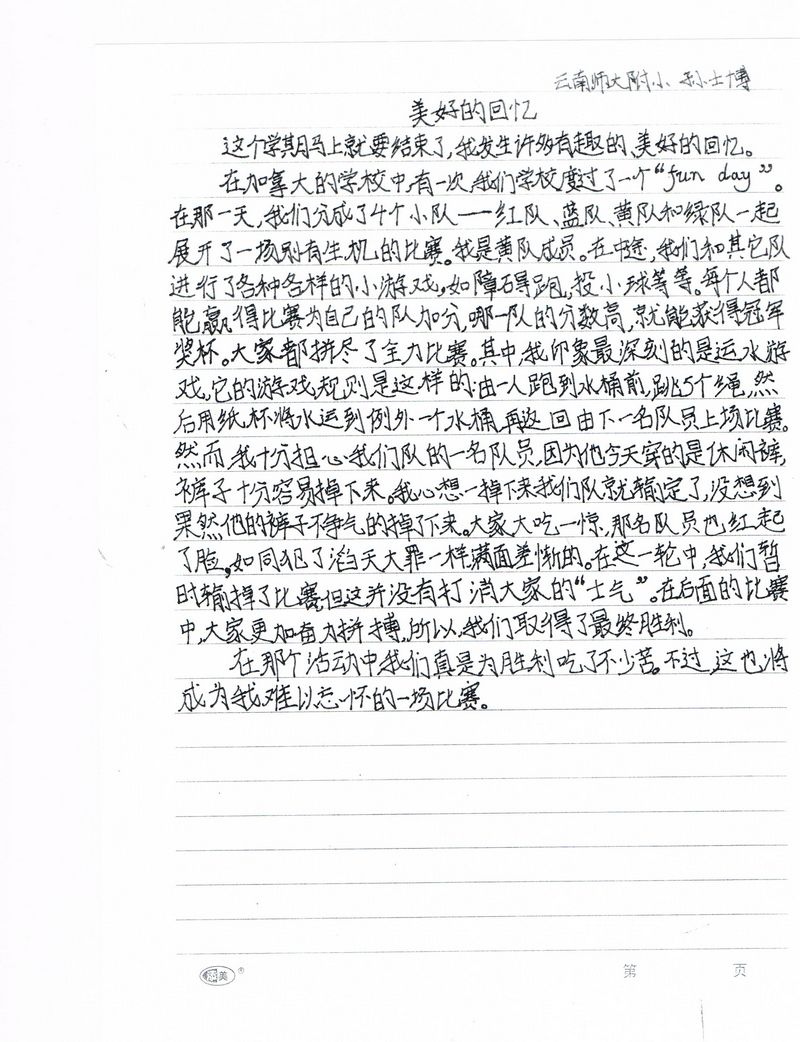 云南师大附小 孙士博
美好的回忆
这个学期马上就要结束了,我发生许多有趣的、美好的回忆。
在加拿大的学校中,有一次,我们学校度过了一个“fun day”。
在那一天,我们分成了4个小队——红队、蓝队、黄队和绿队一起
展开了一场别有生机的比赛。我是黄队成员。在中途,我们和其它队
进行了各种各样的小游戏,如障碍跑,投小球等等。每个人都
能赢得比赛为自己的队加分,哪一队的分数高,就能获得冠军
奖杯。大家都拼尽了全力比赛。其中,我印象最深刻的是运水游
戏,它的游戏规则是这样的:由一人跑到水桶前,跳5个绳,然
后用纸杯将水运到例外一个水桶,再返回由下一名队员上场比赛。
然而,我十分担心我们队的一名队员,因为他今天穿的是休闲裤,
裤子十分容易掉下来。我心想一掉下来我们队就输定了,没想到
果然他的裤子不争气的掉了下来。大家大吃一惊,那名队员也红起
了脸,如同犯了滔天大罪一样满面羞惭的。在这一轮中,我们暂
时输掉了比赛,但这并没有打消大家的“士气”。在后面的比赛
中,大家更加奋力拼搏,所以,我们取得了最终胜利。
在那个活动中,我们真是为胜利吃了不少苦。不过,这也将
成为我难以忘怀的一场比赛。
美
第 页